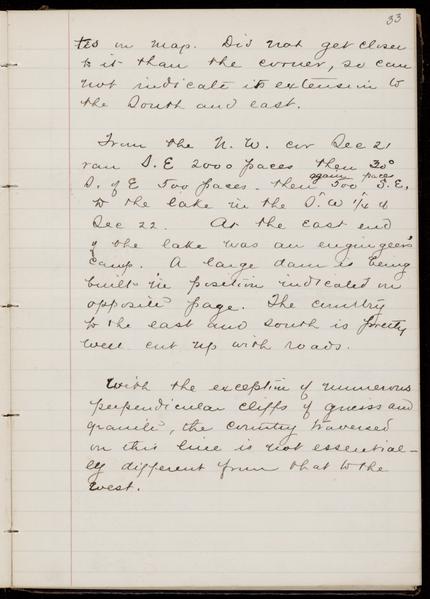 33
ted on map. Did not get closer
to it than the corner, so can
not indicate its extension to
the South and east.
From the N. W. cor Sec 21
ran S. E 2000 paces then 30°
S. of E 500 paces. then again 500 paces S. E,
to the lake in the S. W 1/4 of
Sec 22. At the east end
of the lake was an engineer's
camp. A large dam is being
built in position indicated on
opposite page. The country
to the east and south is pretty
well cut up with roads.
With the exception of numerous
perpendicular cliffs of gneiss and
granite, the country traversed
on this line is not essential-
ly different from that to the
west.